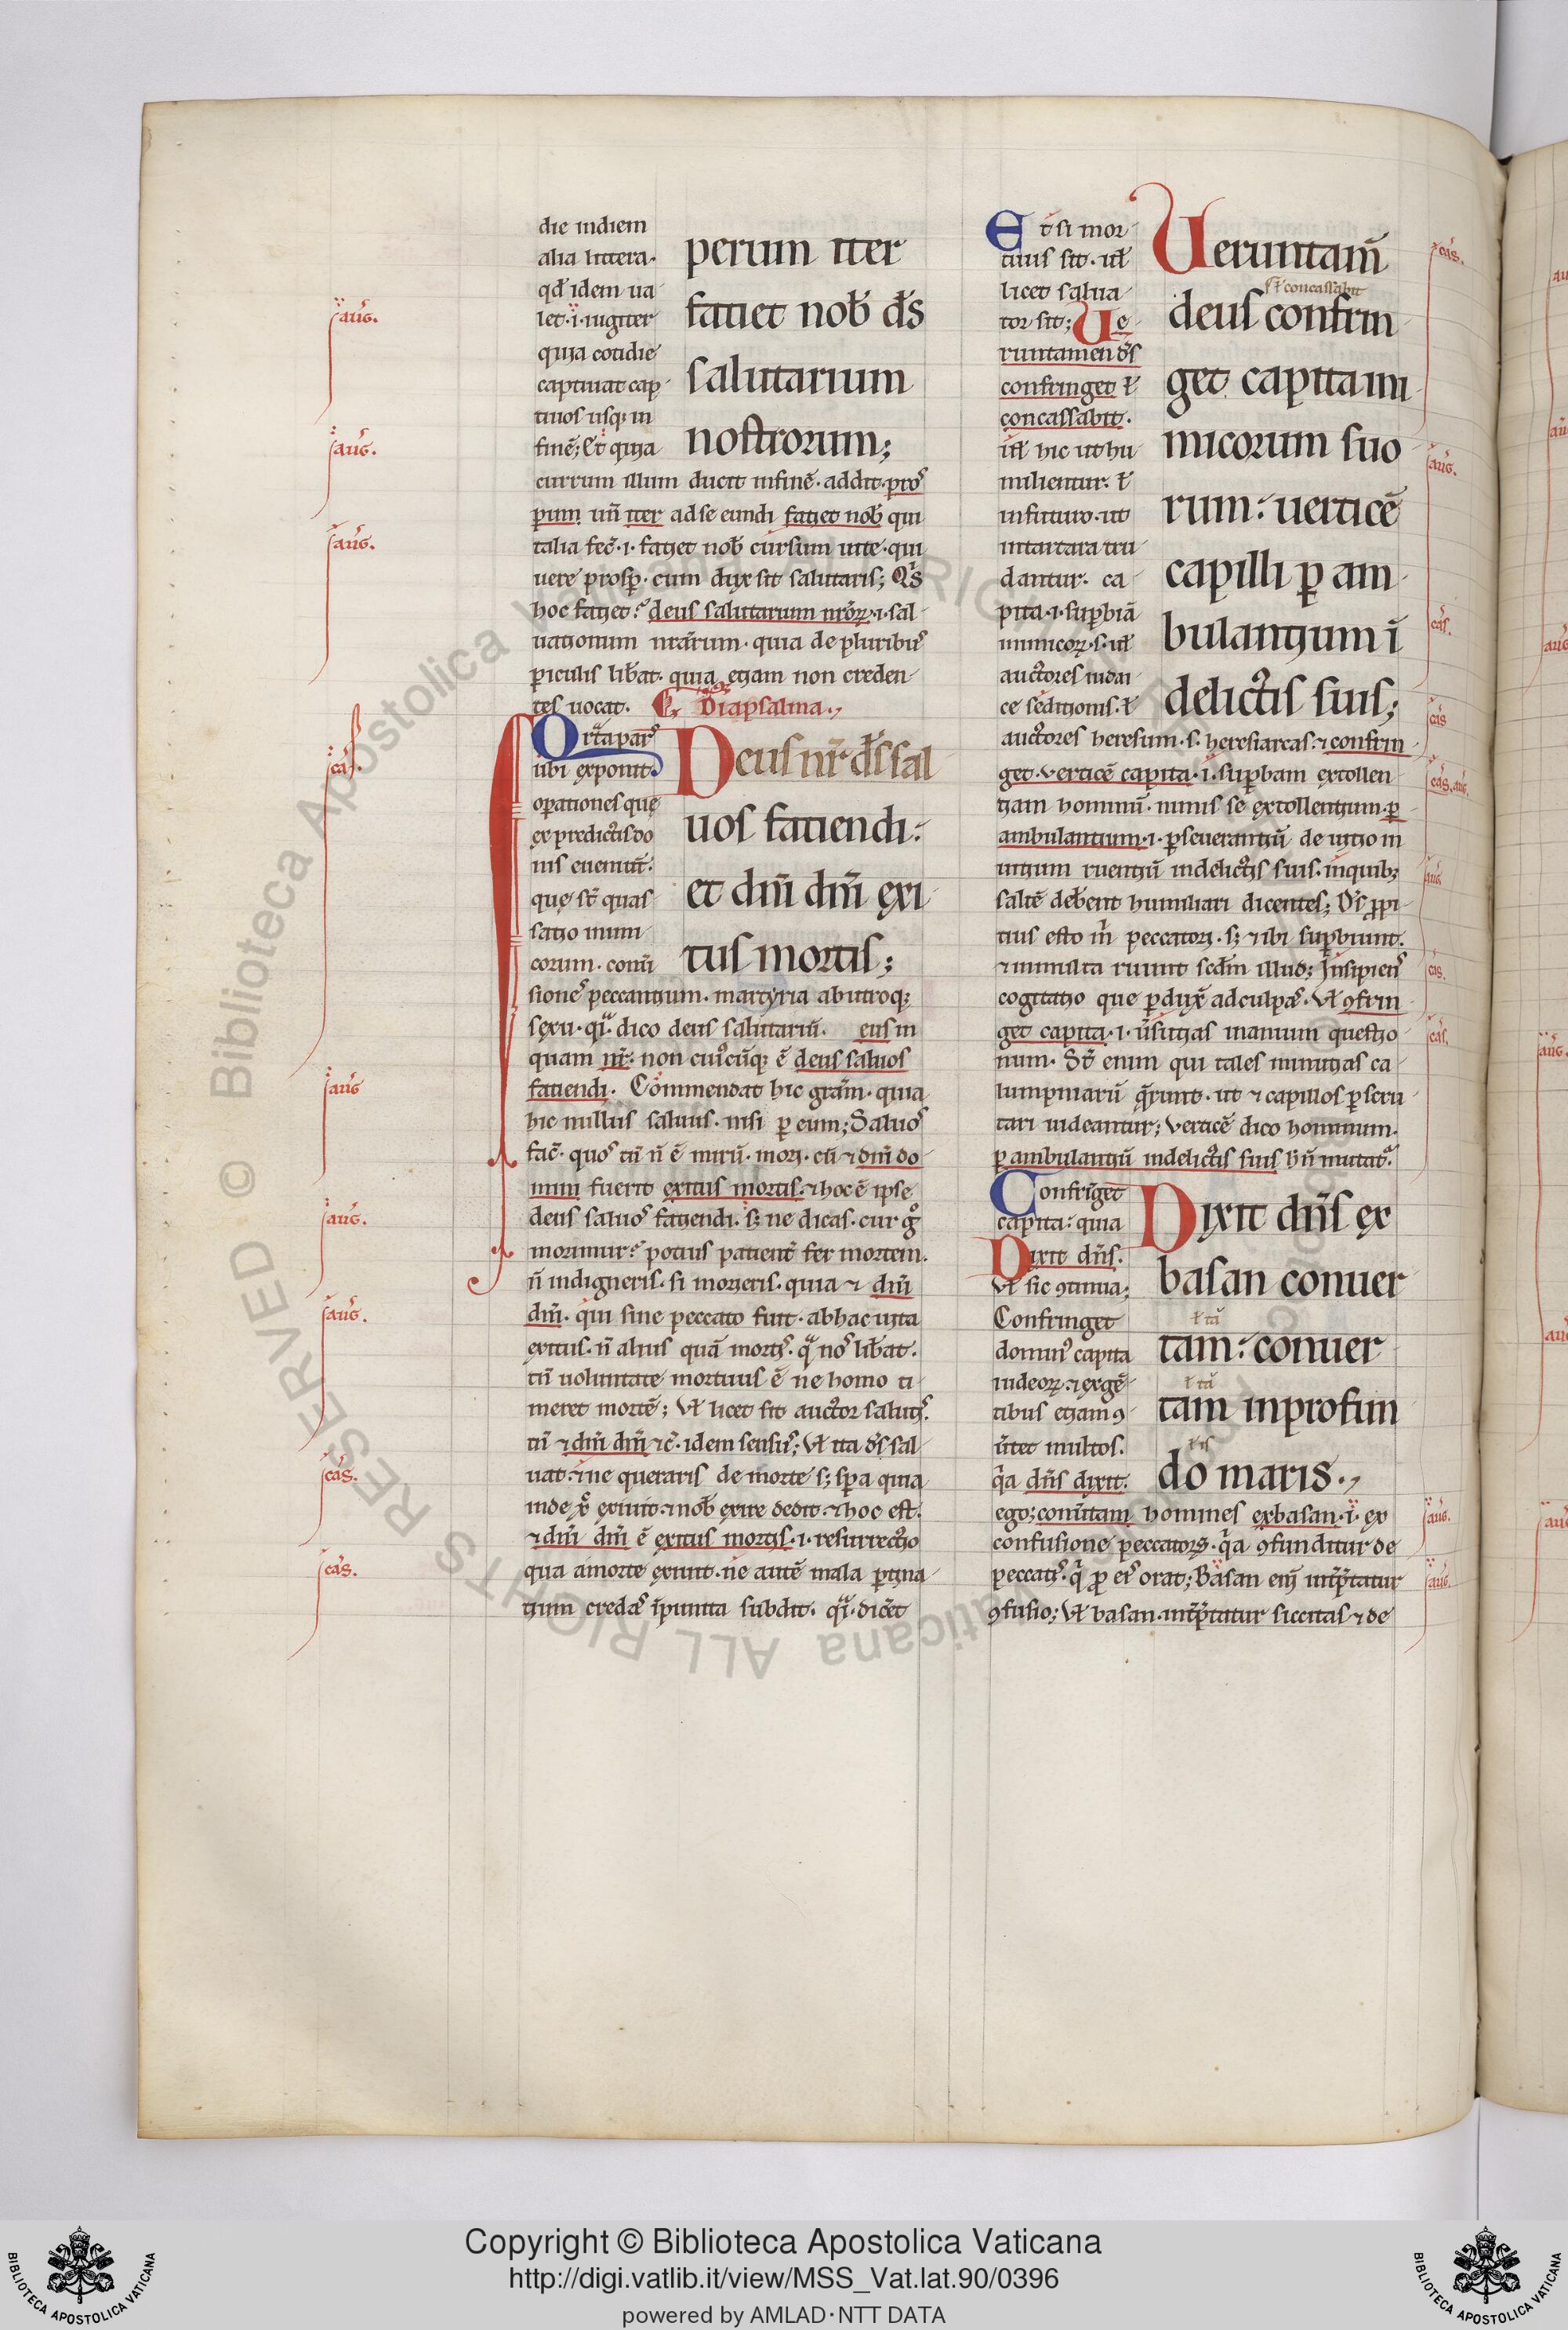 die indiem
alia littera·
qđ idem ua-
let·i·iugiter
quia cotidie
captiuat cap-
tiuos usq; in
finē; Et quia
perum iter
faciet nob̄ d̄s
salutarium
nostrorum;
currum illum ducit infinē· addit· pros
perum un̄ iter adse eundi faciet nob̄ qui
talia fec̄·i· faciet nob̄ cursum uite· qui
uere prosp̄· cum dux sit salutaris; Q̄s
hoc faciet? deus salutarum nr̄oꝝ·i·sal-
uationum nr̄arum· quia de pluribus
piculis lib̄at· quia etiam non creden-
tes uocat. Diapsalma.
Qrta pars
ubi exponit
oꝑationes que
ex predictis do
nis eueniūt·
que st̄ quas-
satio inimi-
corum· conū
Deus nr̄ d̄s sal
uos faciendi:
et dn̄i dn̄i exi-
tus mortis;
siones peccantium· martyria ab utroq;
sexu· q̄i· dico deus salutariū· eus in
quam nr̄· non cuiuscūq; ē deus saluos
faciendi· Commendat hic gr̄am· quia
hic nullus saluus· nisi ꝑ eum; Saluos
fac̄· quos tn̄ n̄ ē mirū· mori· cū ⁊ dn̄i do-
mini fuerit exitus mortis· ⁊ hoc ē ipse
deus saluos faciendi· s; ne dicas· cur g̊
morimur? potius patient̄ fer mortem.
n̄ indigneris· si morieris· quia ⁊ dn̄i
dn̄i· qui sine peccato fuit· ab hac uita
exitus· n̄ alius quā mortis· q̄ nos lib̄at.
tn̄ uoluntate mortuus ē ne homo ti-
meret mortē; Vł licet sit auctor salutis·
tn̄ ⁊ dn̄i dn̄i ⁊c̄· idem sensus; Vł ita d̄s sal-
uat· ⁊ ne queraris de morte s; spera quia
inde xp̄o exiuit ⁊ nob̄ exire dedit· ⁊ hoc est·
⁊ dn̄i dn̄i ē exitus mortis·i· resurrectio
qua a morte exiuit· ne autē mala ꝑtina-
tium credas īpunita subdit· q̄i· dic̄et
Et si mor-
tuus sit· uł
licet salua-
tor sit; Ue-
runtamen d̄s
confringet ł
concassabit·
uł hic ut hu-
milientur· ł
infuturo· ut
intartara tru-
dantur· ca-
pita·i·suꝑbiā
inimicoꝝ·s·uł
auctores iudai-
ce seditionis· ł
Ueruntam̄
ł concassabit
deus confrin-
get capita ini-
micorum suo
rum: uerticē
capilli ꝑam-
bulantium ī
delictis suis;
auctores heresum·s·heresiarcas· ⁊ confrin-
get· verticē capita·i·suꝑbam extollen-
tiam hominū· nimis se extollentium· ꝑ-
ambulantium·i·ꝑseuerantiū de uitio in
uitium ruentiū in delictis suis· in quib;
saltē deb̄ent humiliari dicentes; D̄s ꝓpi-
tius esto m̄ peccatori· s; ⁊ ibi suꝑbiunt·
⁊ in multa ruunt scd̄m illud; Insipiens
cogitatio que ꝑdux̄ ad culpas· Vł ꝯfrin-
get capita·i·
num· St̄ enim qui tales minutias ca-
lumpniarū q̄runt· ut ⁊ capillos ꝑscru-
tari uideantur; verticē dico hominum·
ꝑambulantiū in delictis suis h̄ n̄ mutat̄·
Confringet
capita: quia
Dixit dn̄s·
Vł sic ꝯtinua;
Confringet
dominus capita
iudeoꝝ· ⁊ ex gē-
tibus etiam ꝯ-
ūtet multos·
q̄a dn̄s dixit·
Dixit dn̄s ex
basan conuer
ł tā
tam: conuer
ł tā
tam inprofun
ł is
do maris.
ego; conūtam homines ex basan·i· ex
confusione peccatoꝝ· q̄a ꝯfunditur de
peccatis· q̄ ꝓ eis orat; Basan eni int̄p̄tatur
ꝯfusio; Vł basan int̄p̄tatur siccitas ⁊ de
auḡ.
auḡ.
auḡ.
cas̄.
auḡ
auḡ.
auḡ.
cas̄.
cas̄.
cas̄.
auḡ.
cas̄.
cas̄
cas̄. auḡ.
auḡ
cas̄.
cas̄.
auḡ.
auḡ.
© Biblioteca Apostolica Vaticana ALL RIGHTS RESERVED
Copyright © Biblioteca Apostolica Vaticana
http://digi.vatlib.it/view/MSS_Vat.lat.90/0396
powered by AMLAD·NTT DATA
BIBLIOTECA APOSTOLICA VATICANA
BIBLIOTECA APOSTOLICA VATICANA